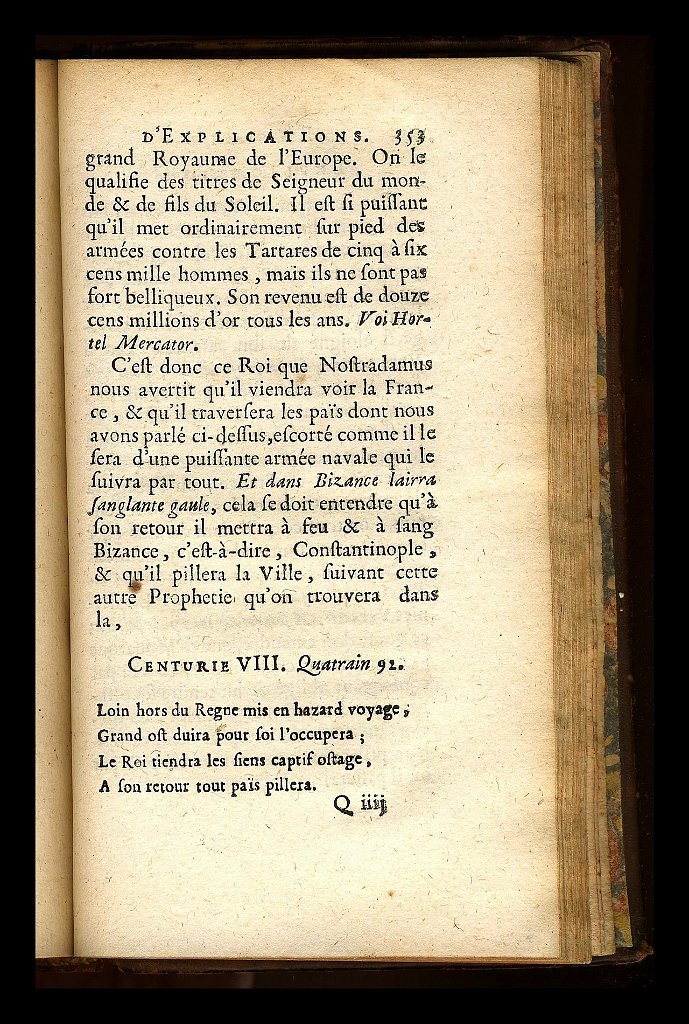 D'EXPLICATIONS. 353
grand Royaume de l'Europe. On le
qualifie des titres de Seigneur du mon-
de & de fils du Soleil. Il eſt ſi puiſſant
qu'il met ordinairement ſur pied des
armées contre les Tartares de cinq à ſix
cens mille hommes, mais ils ne ſont pas
fort belliqueux. Son revenu eſt de douze
cens millions d'or tous les ans. Voi Hor-
tel Mercator.
C'eſt donc ce Roi que Noſtradamus
nous avertit qu'il viendra voir la Fran-
ce, & qu'il traverſera les païs dont nous
avons parlé ci-deſſus, eſcorté comme il le
ſera d'une puiſſante armée navale qui le
ſuivra par tout. Et dans Bizance lairra
ſanglante gaule, cela ſe doit entendre qu'à
ſon retour il mettra à feu & à ſang
Bizance, c'eſt-à-dire, Conſtantinople,
& qu'il pillera la Ville, ſuivant cette
autre Prophetie qu'on trouvera dans
la,
CENTURIE VIII. Quatrain 92.
Loin hors du Regne mis en hazard voyage;
Grand oſt duira pour ſoi l'occupera;
Le Roi tiendra les ſiens captif oſtage,
A ſon retour tout païs pillera.
Q iiij